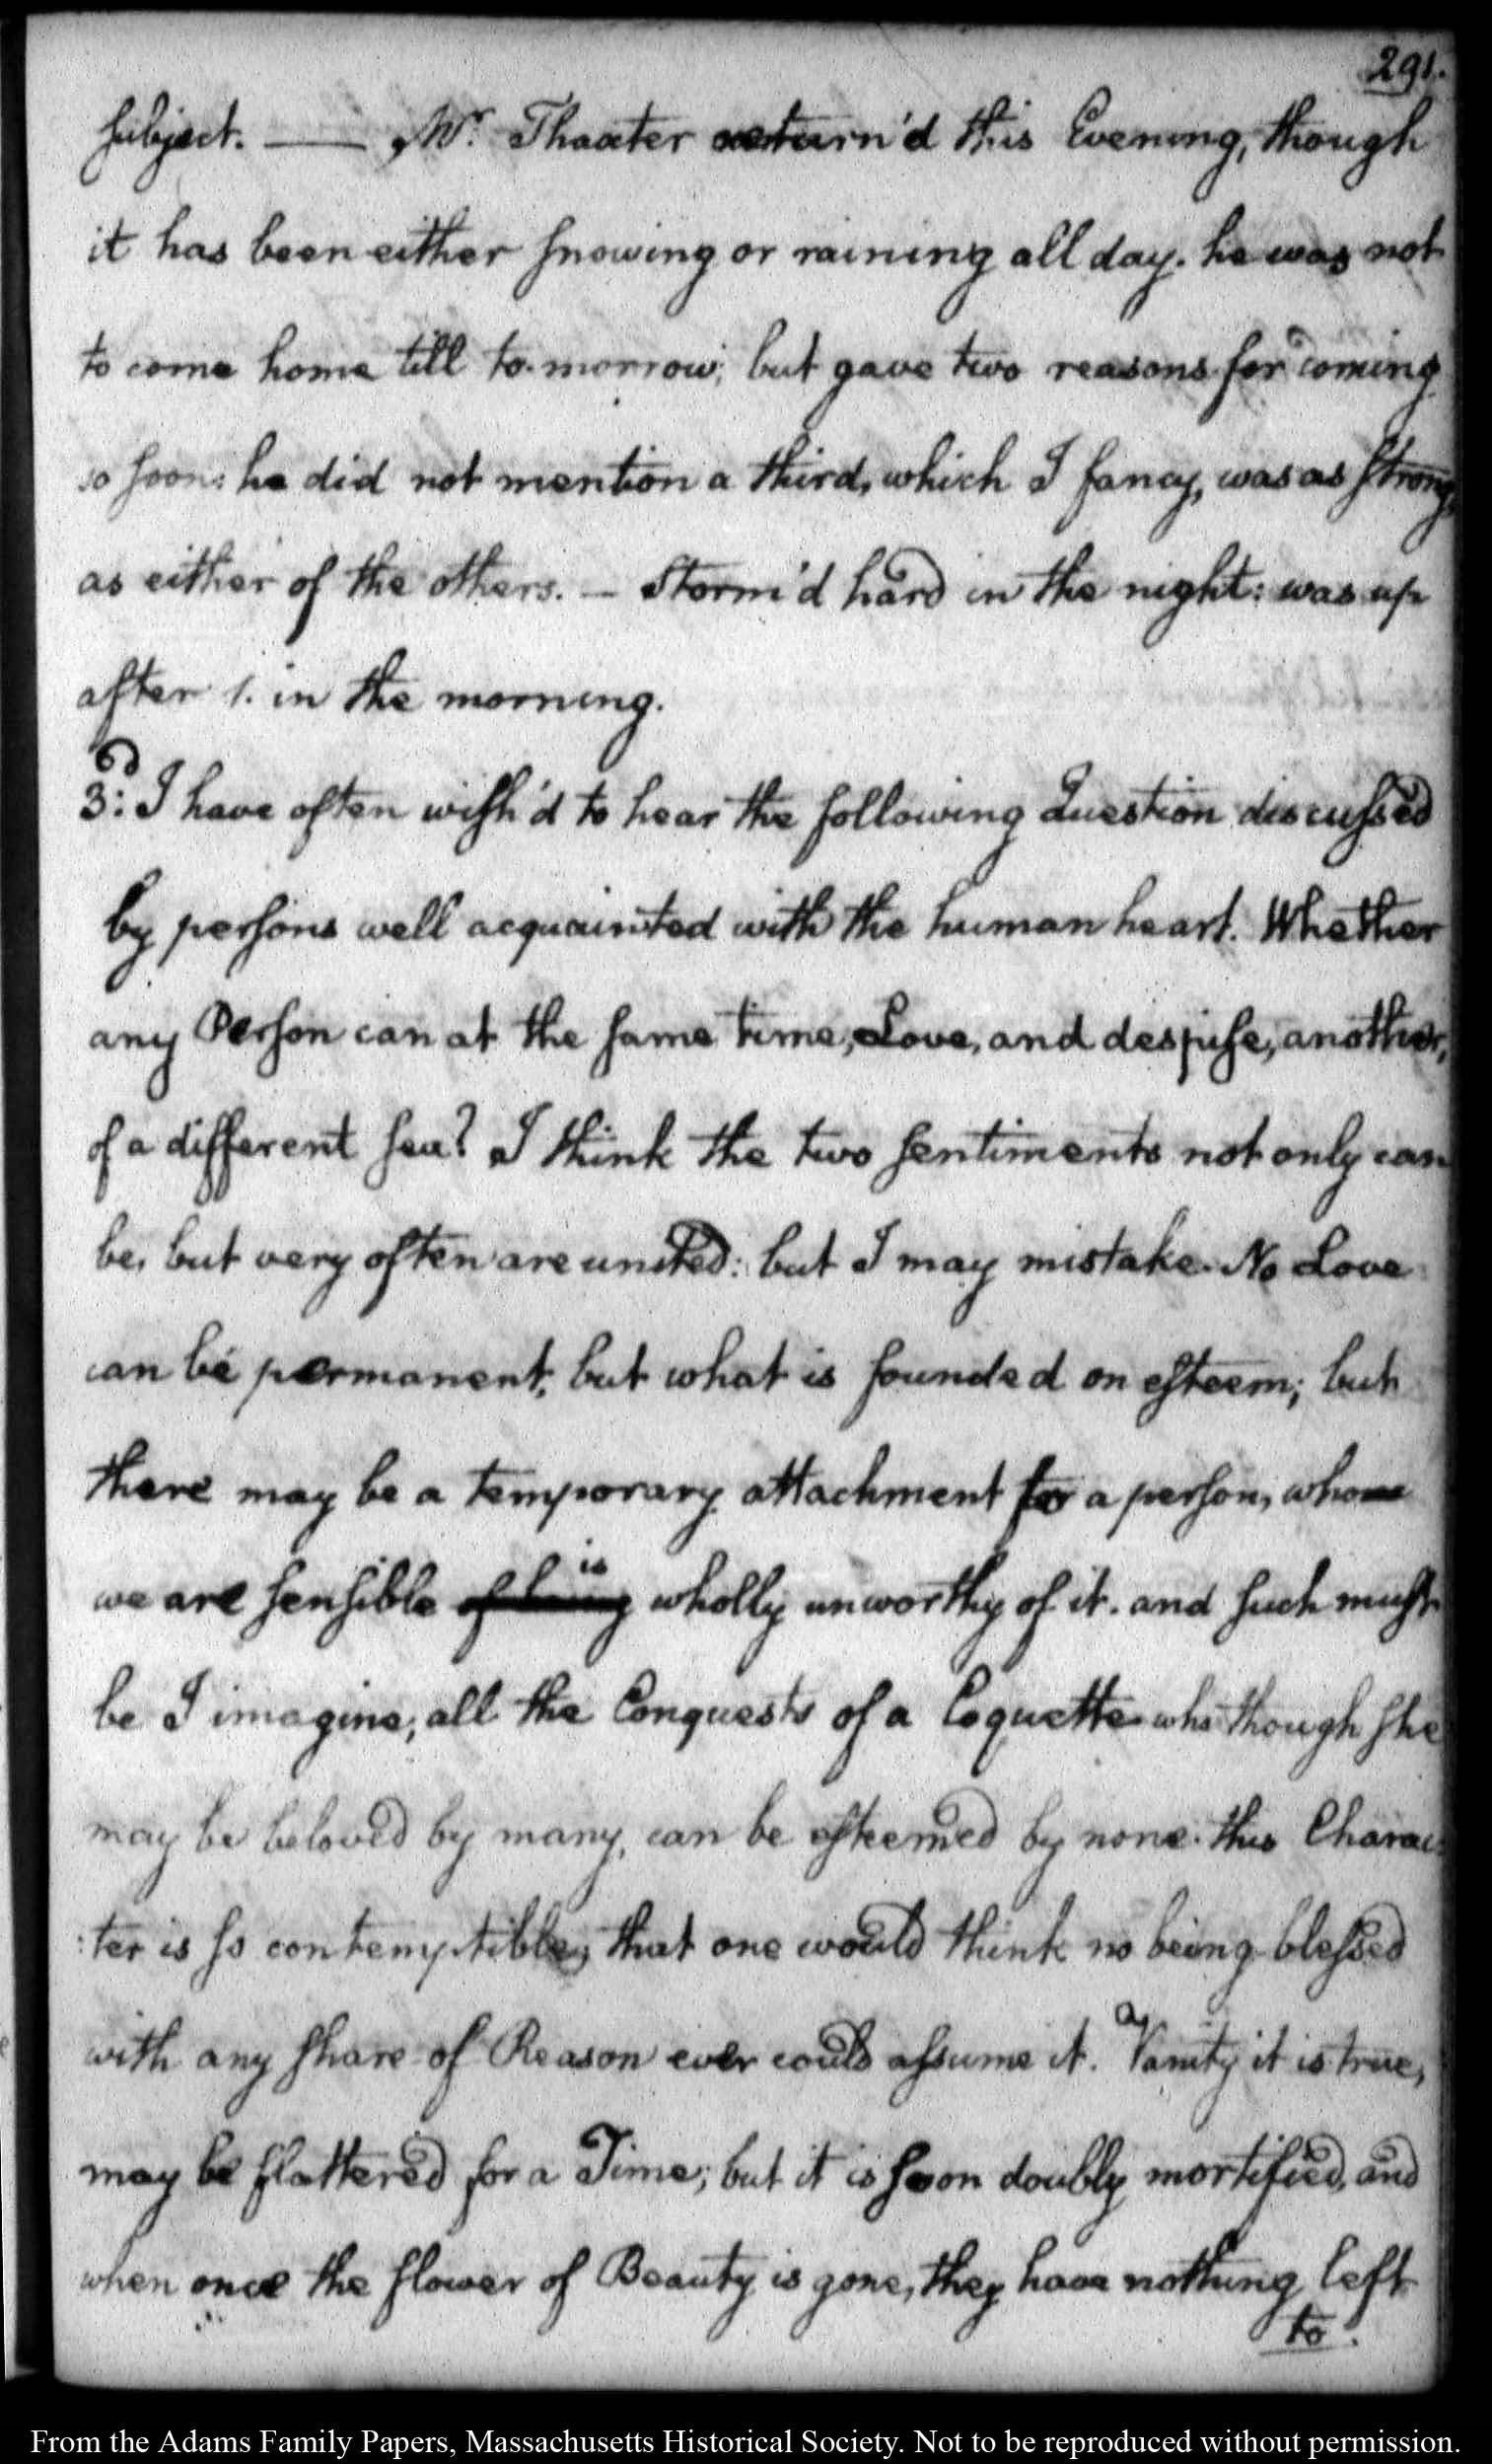 291.
subject. — Mr. Thaxter return'd this Evening, though
it has been either snowing or raining all day. he was not
to come home till to-morrow; but gave two reasons for coming
so soon: he did not mention a third, which I fancy, was as strong,
as either of the others. — Storm'd hard in the night: was up
after 1. in the morning.
3d: I have often wish'd to hear the following Question discussed
by persons well acquainted with the human heart. Whether
any Person can at the same time, Love, and despise, another,
of a different sex? I think the two sentiments not only can
be, but very often are united: but I may mistake. No Love
can be permanent, but what is founded on esteem; but
there may be a temporary attachment for a person, who
we are sensible is wholly unworthy of it. and such must
be I imagine, all the Conquests of a Coquette who though she
may be beloved by many, can be esteemed by none. this Charac:
:ter is so contemptible, that one would think no being blessed
with any share of Reason ever could assume it. a Vanity it is true,
may be flattered for a Time; but it is soon doubly mortified, and
when once the flower of Beauty is gone, they have nothing left
to.
From the Adams Family Papers, Massachusetts Historical Society. Not to be reproduced without permission.